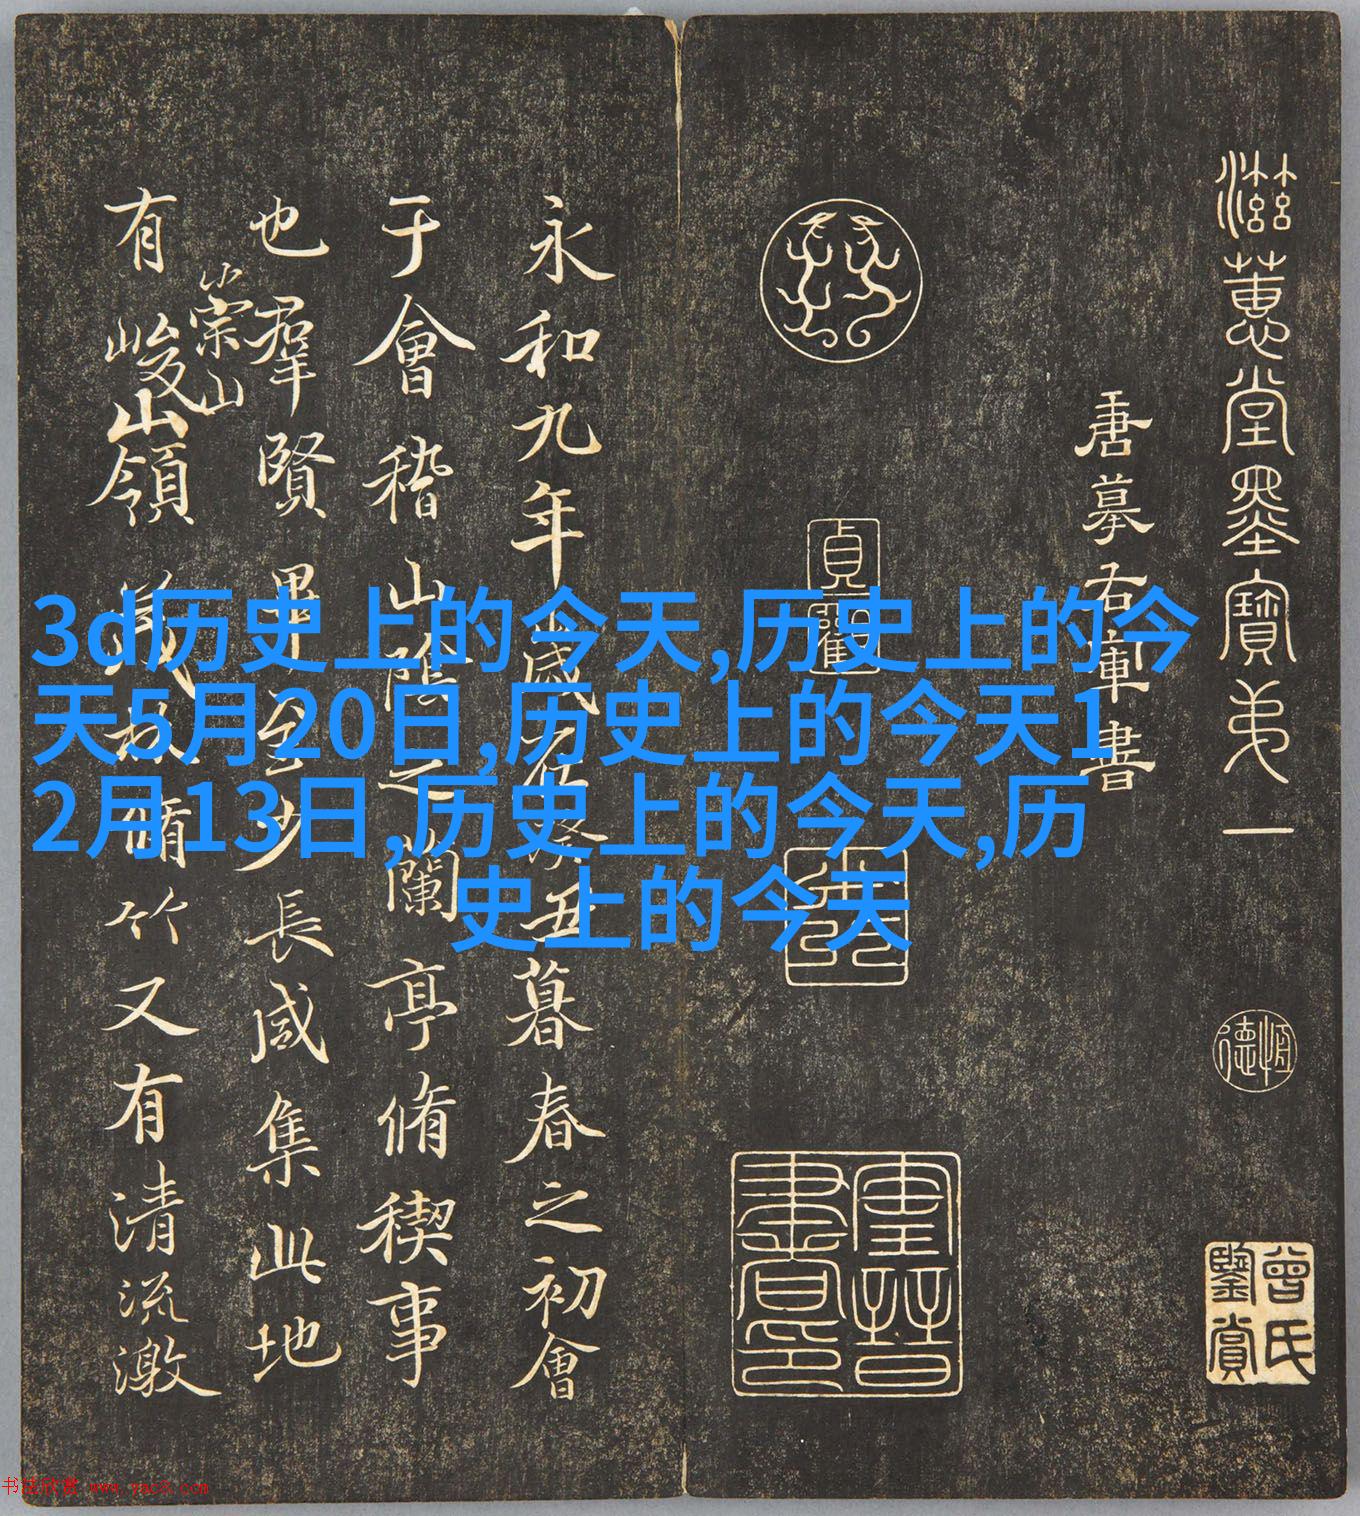 滋蕙堂墨寶弟一
唐摹右軍書
貞觀
曾氏鑒賞
永和九年歲在癸丑暮春之初會
于會稽山陰之蘭亭脩稧事
也羣賢畢至少長咸集此地
有崇山峻山領茂林脩竹又有清流激
3d历史上的今天,历史上的今
天5月20日,历史上的今天1
2月13日,历史上的今天,历
史上的今天
书法欣赏 www.yac8.com